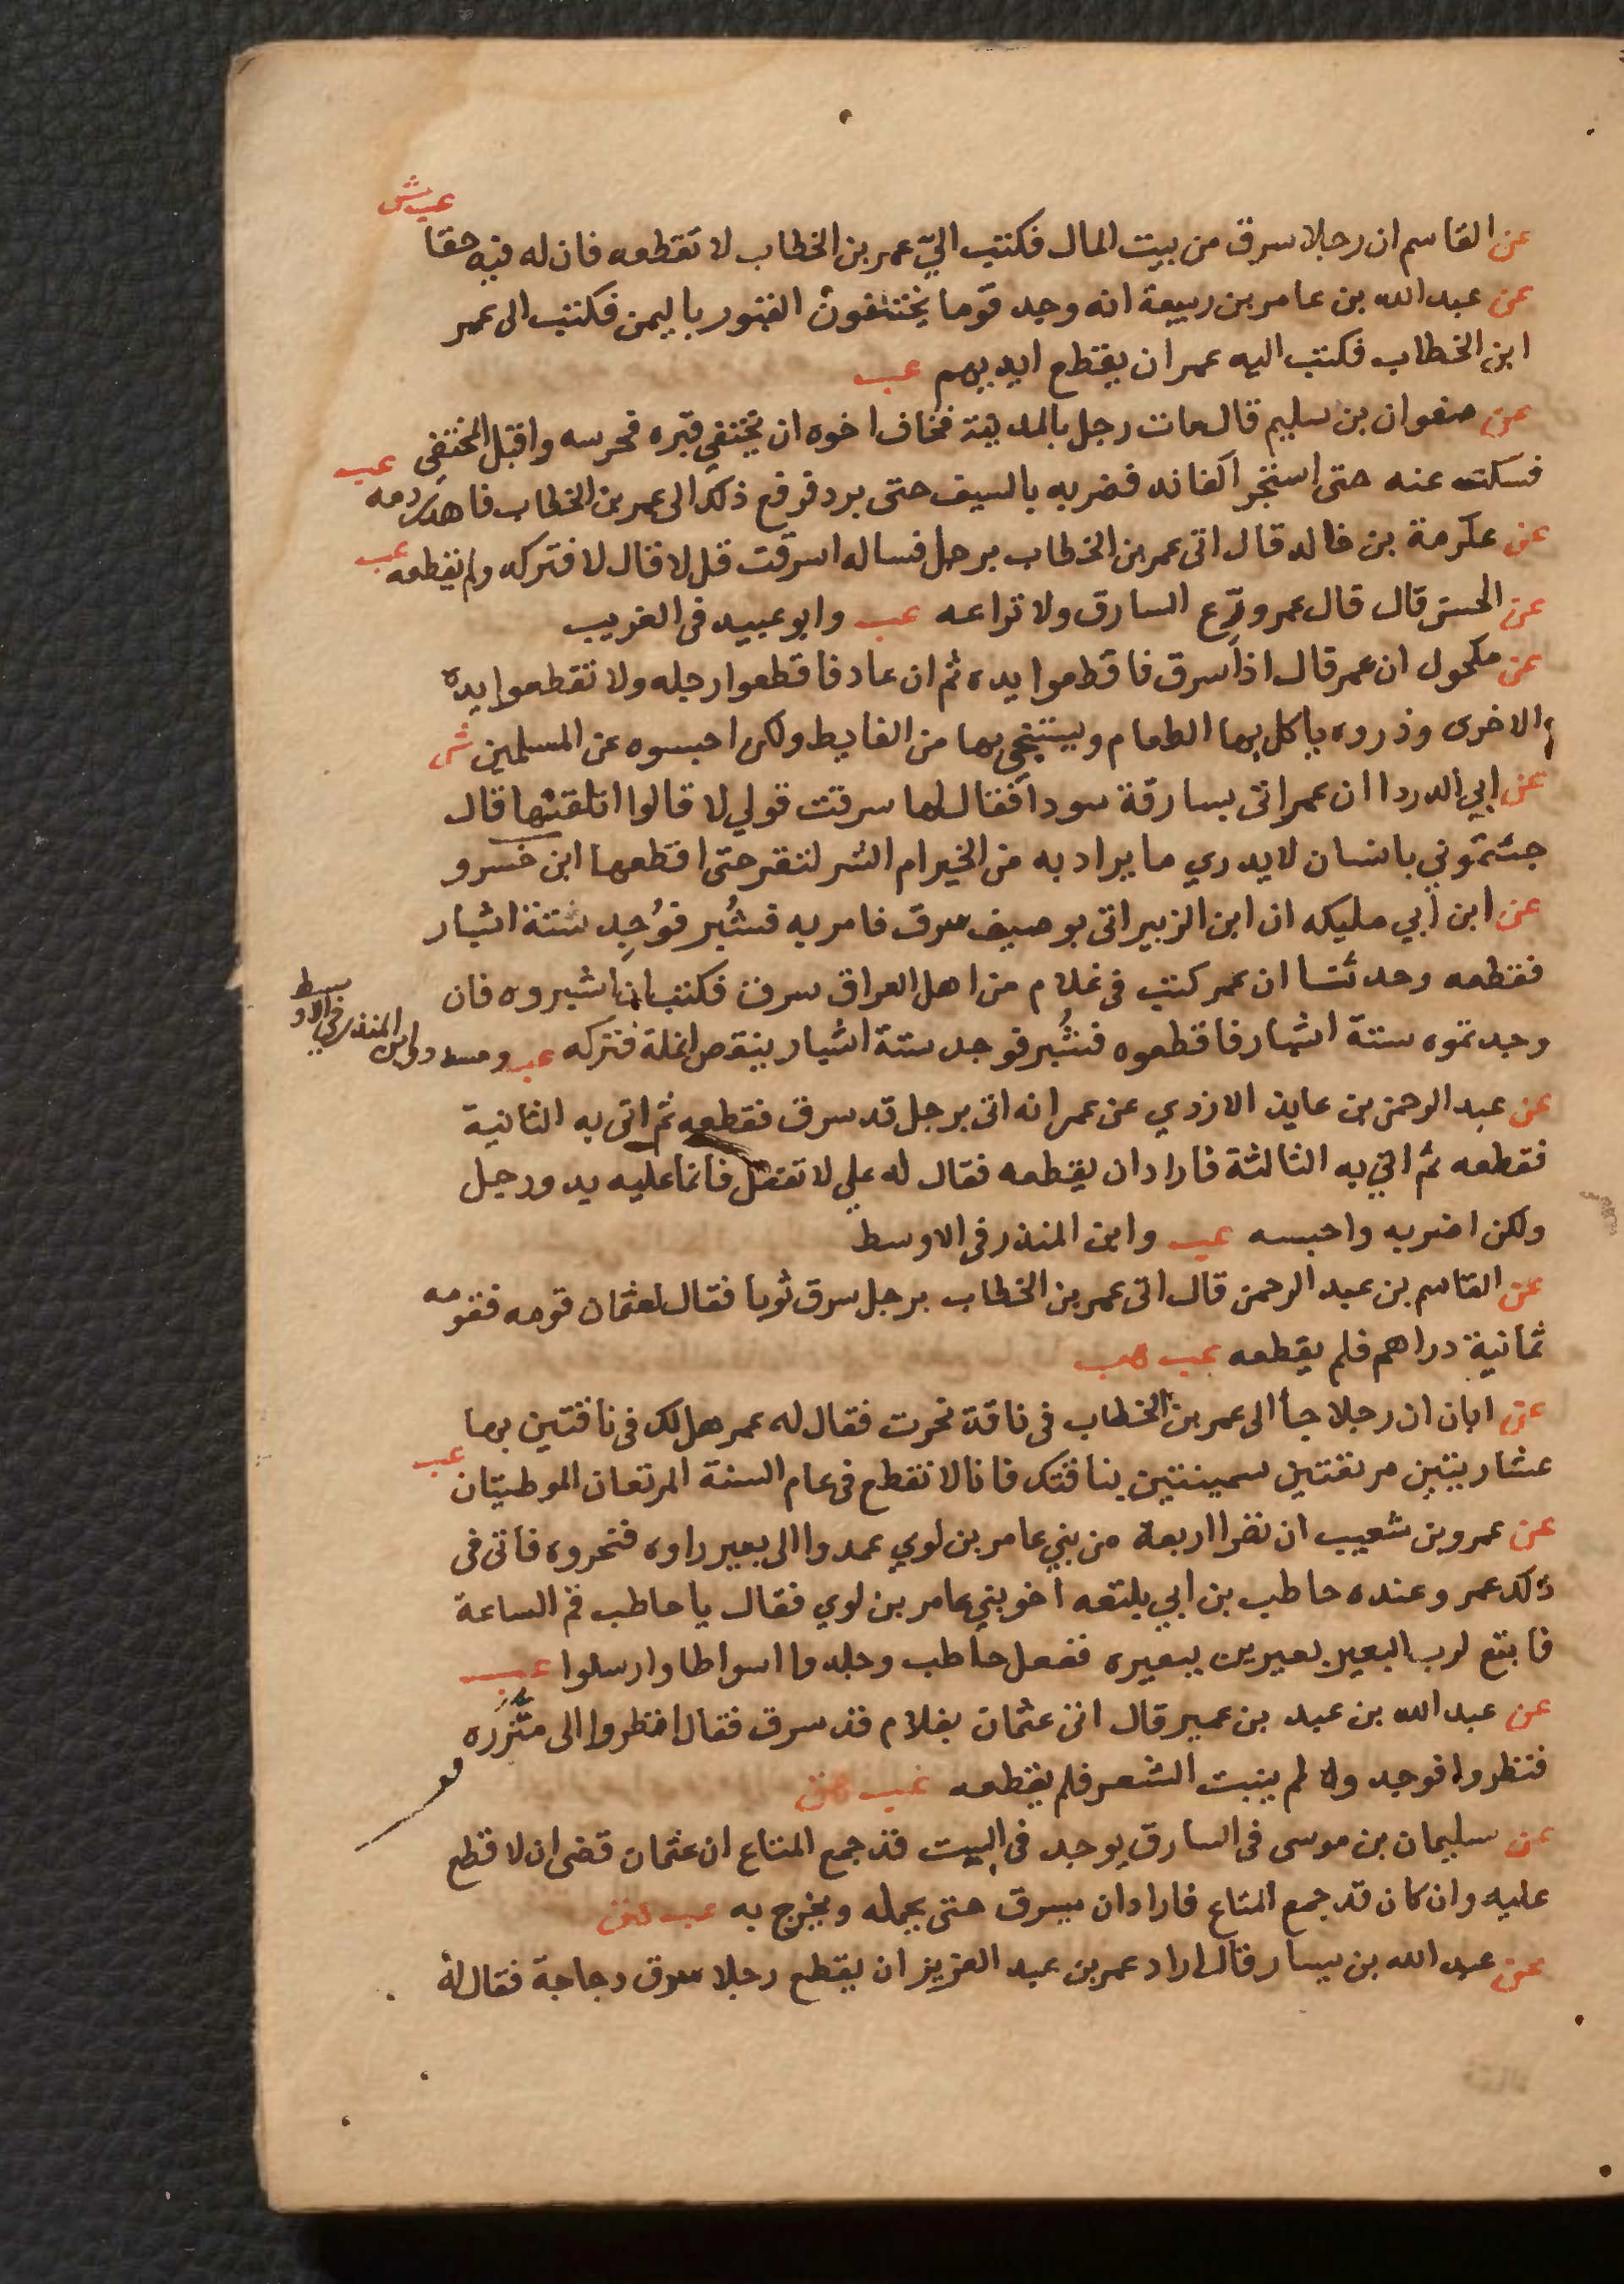 عب ش
عن القاسم ان رجلا سرق من بيت المال فكتب اليّ عمر بن الخطاب لا تقطعه فان له فيه حقا
عن عبد الله بن عامر بن ربيعة انه وجد قوما يختفون القبور باليمن فكتب الى عمر
ابن الخطاب فكتب اليه عمر ان يقطع ايديهم عب
عن صفوان بن سليم قال مات رجل بالمدينة فخاف اخوه ان يختفي قبره فحرسه واقبل المختفي
فسكت عنه حتى استخرج اكفانه فضربه بالسيف حتى برد فرفع ذلك الى عمر بن الخطاب فاهدر دمه عب
عن عكرمة بن خالد قال اتى عمر بن الخطاب برجل فساله اسرقت قل لا فقال لا فتركه ولم يقطعه عب
عن الحسن قال قال عمر ورّع السارق ولا تراعه عب وابو عبيد فى الغريب
عن مكحول ان عمر قال اذا سرق فاقطعوا يده ثم ان عاد فاقطعوا رجله ولا تقطعوا يده
الاخرى وذروه ياكل بها الطعام ويستنجي بها من الغايط ولكن احبسوه عن المسلمين ش
عن ابي الدردا ان عمر اتى بسارقة سودا فقال لها سرقت قولي لا قالوا اتلقنها قال
جئتموني بانسان لا يدري ما يراد به من الخير ام الشر لتقر حتى اقطعها ابن خسرو
عن ابن أبي مليكه ان ابن الزبير اتى بوصيف سرق فامر به فشُبر فوُجِد ستة اشبار
فقطعه وحدثنا ان عمر كتب فى غلام من اهل العراق سرق فكتب ان اشبروه فان
وجدتموه ستة اشبار فاقطعوه فشُبر فوجد ستة اشبار ينقص انملة فتركه عب ومسدد وابن المنذر في الاوسط
عن عبد الرحمن بن عايذ الازدي عن عمر انه اتى برجل قد سرق فقطعه ثم اتى به الثانية
فقطعه ثم اتي به الثالثة فاراد ان يقطعه فقال له علي لا تفعل فانما عليه يد ورجل
ولكن اضربه واحبسه عب وابن المنذر فى الاوسط
عن القاسم بن عبد الرحمن قال اتى عمر بن الخطاب برجل سرق ثوبا فقال لعثمان قومه فقومه
ثمانية دراهم فلم يقطعه عب هب
عن ابان ان رجلا جأ الى عمر بن الخطاب فى ناقة نحرت فقال له عمر هل لك فى ناقتين بها
عشاريتين مرتغتين سمينتين بناقتك فانا لا نقطع فى عام السنة المرتعان الموطيتان عب
عن عمرو بن شعيب ان نفرا اربعة من بني عامر بن لوي عمدوا الى بعير راوه فنحروه فاتى فى
ذلك عمر وعنده حاطب بن ابي بلتعه اخو بني عامر بن لوي فقال يا حاطب قم الساعة
فابتع لرب البعير بعيرين ببعيره ففعل حاطب وجلدوا اسواطا وارسلوا عب
عن عبد الله بن عبيد بن عمير قال اتى عثمان بغلام قد سرق فقال انظروا الى مئزره
فنظروا فوجدوه لم ينبت الشعر فلم يقطعه عب هق
عن سليمان بن موسى فى السارق يوجد فى البيت قد جمع المتاع ان عثمان قضى ان لا قطع
عليه وان كان قد جمع المتاع فاراد ان يسرق حتى يحمله ويخرج به عب هق
عن عبد الله بن يسار قال اراد عمر بن عبد العزيز ان يقطع رجلا سرق دجاجة فقال له